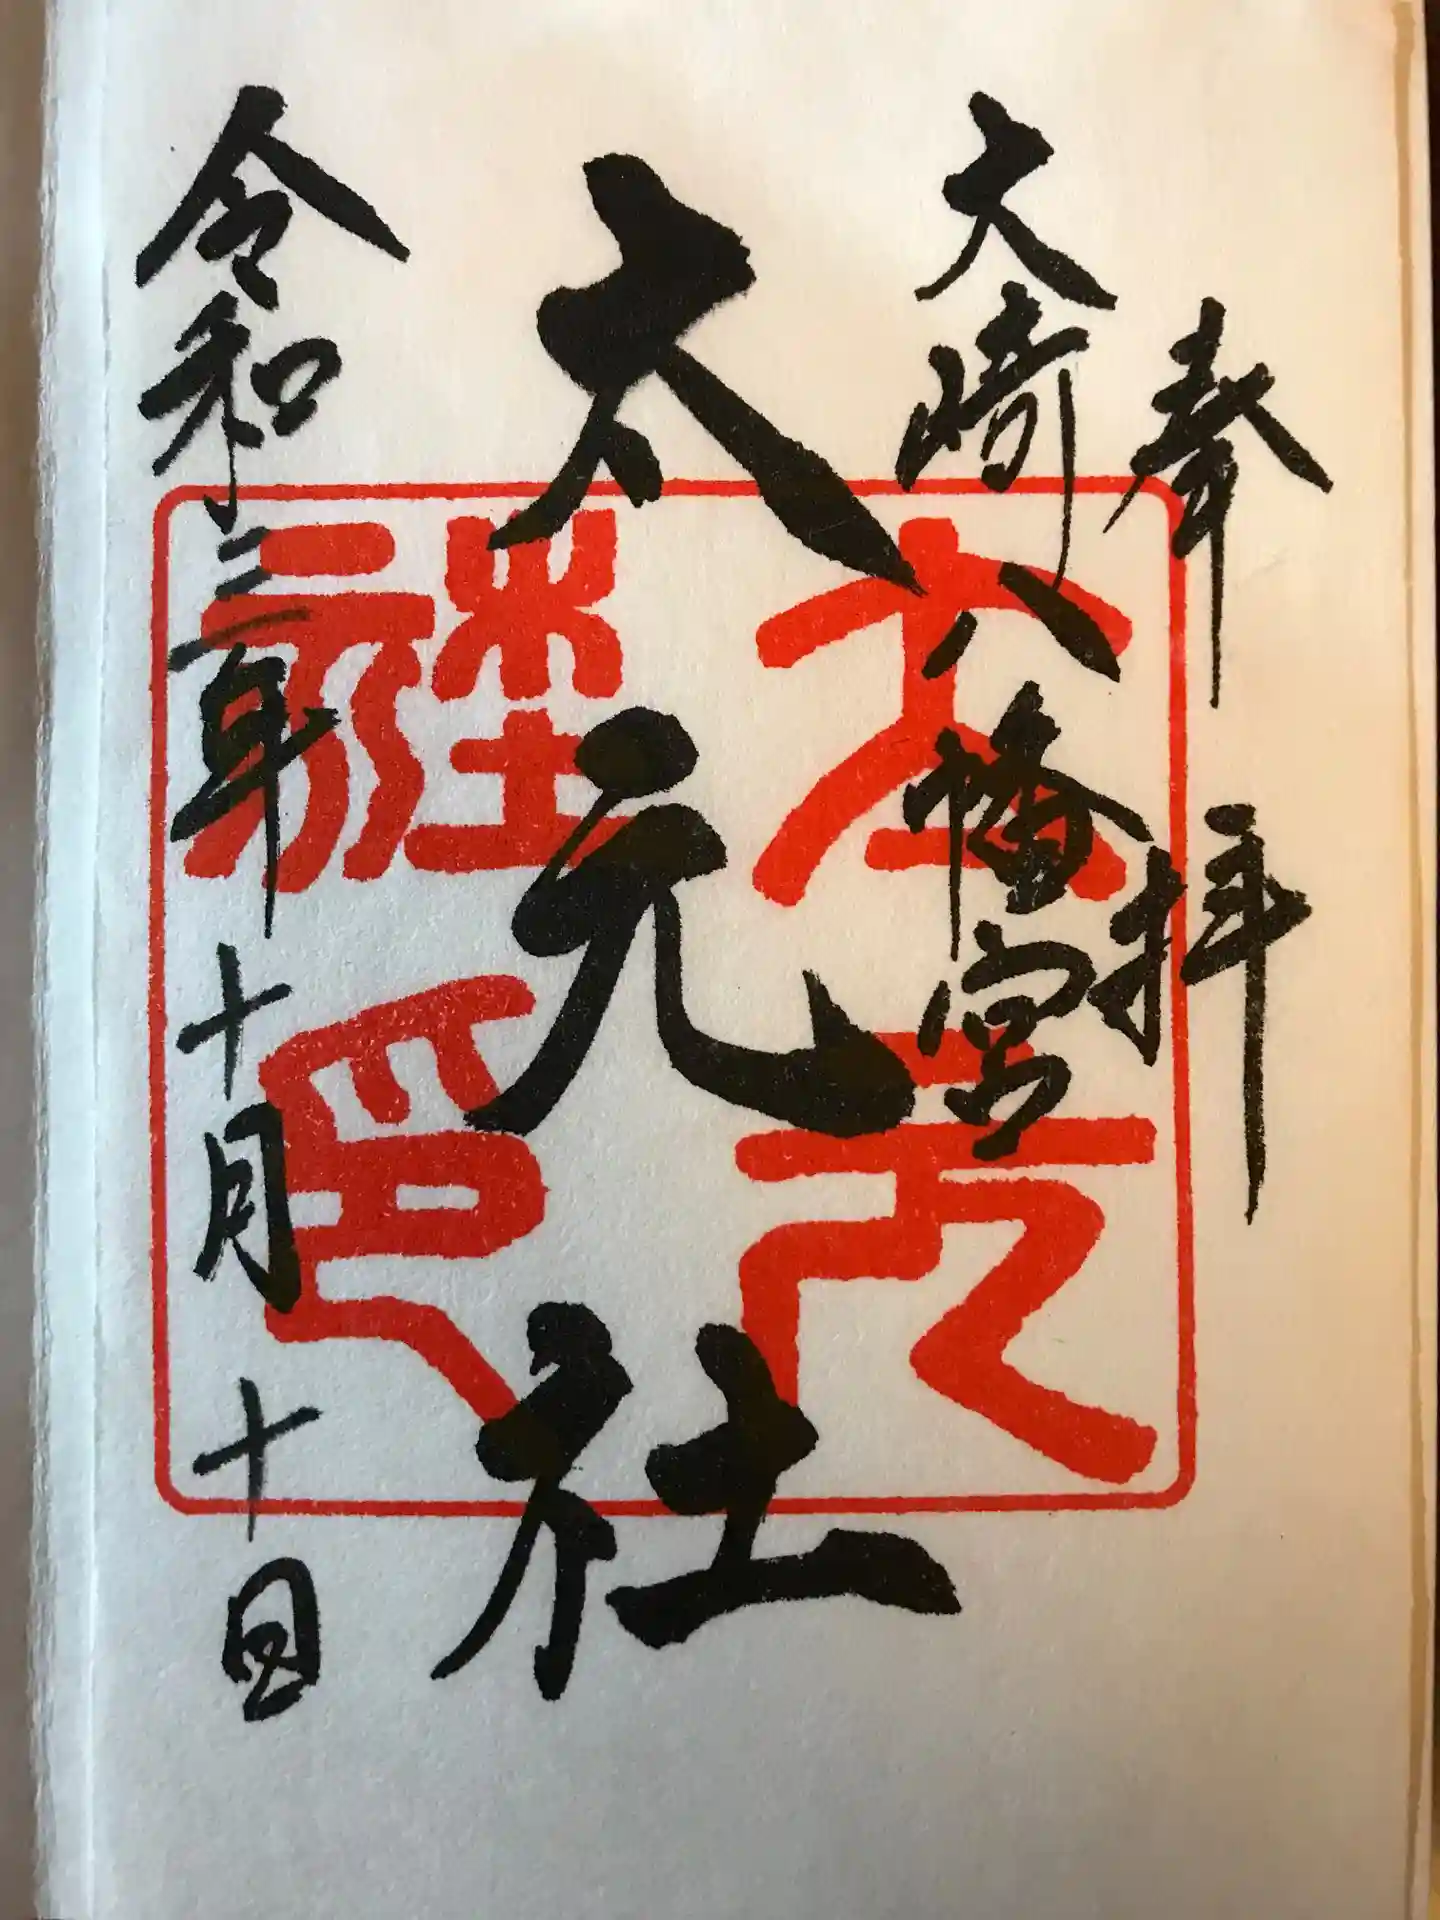 奉拝
大崎八幡宮
太元社
令和三年十月十日
太元
社印